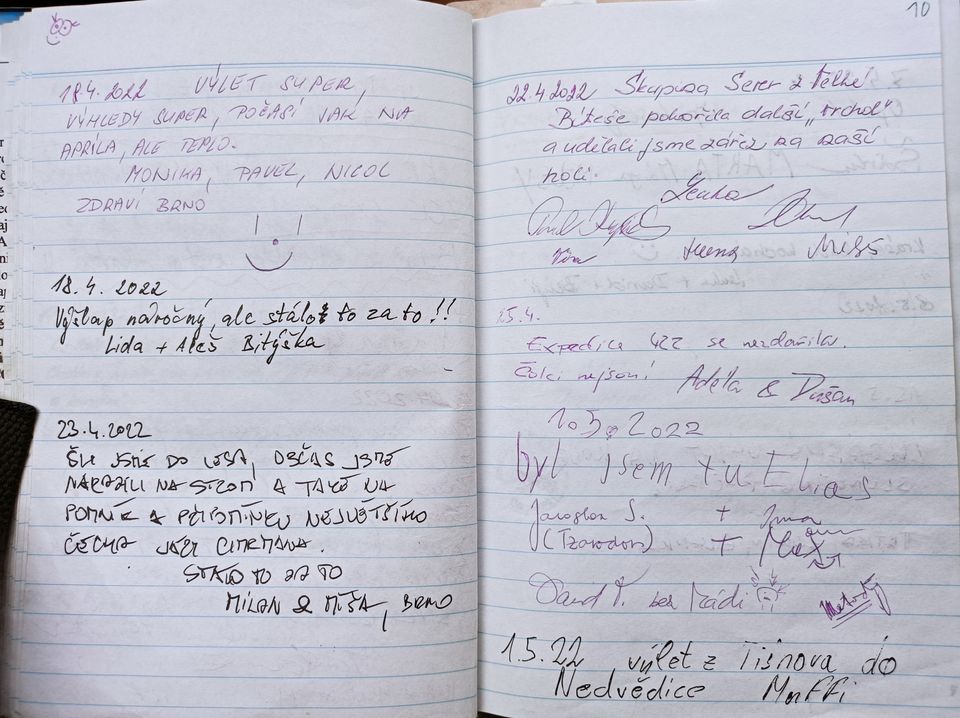 18.4.2022 VÝLET SUPER,
VÝHLEDY SUPER, POČASÍ JAK NA
APRÍLA, ALE TEPLO.
MONIKA, PAVEL, NICOL
ZDRAVÍ BRNO
18.4.2022
Výšlap náročný, ale stálo to za to!!
Lida + Aleš Bitýška
23.4.2022
ŠLI JSME DO LESA, OBČAS JSME
NARAZILI NA STROM A TAKÉ NA
POMNÍK A PŘIPOMÍNKU NEJVĚTŠÍHO
ČECHA JÁRY CIMRMANA.
STÁLO TO ZA TO
MILAN & MÍŠA, BRNO
10
22.4.2022 Skupina Serer z Velké
Bíteše pokořila další „vrchol"
a udělali jsme zářez za naší
holí.
Lenka
Míša
25.4.
Expedice 422 se nezdařila.
Čolci nejsou! Adéla & Dušan
1.5.2022
byl jsem tu Elias
Jaroslav S. + Irma
+ Max
David V. bez Mádi
Metoděj
1.5.22 výlet z Tišnova do
Nedvědice Morffi